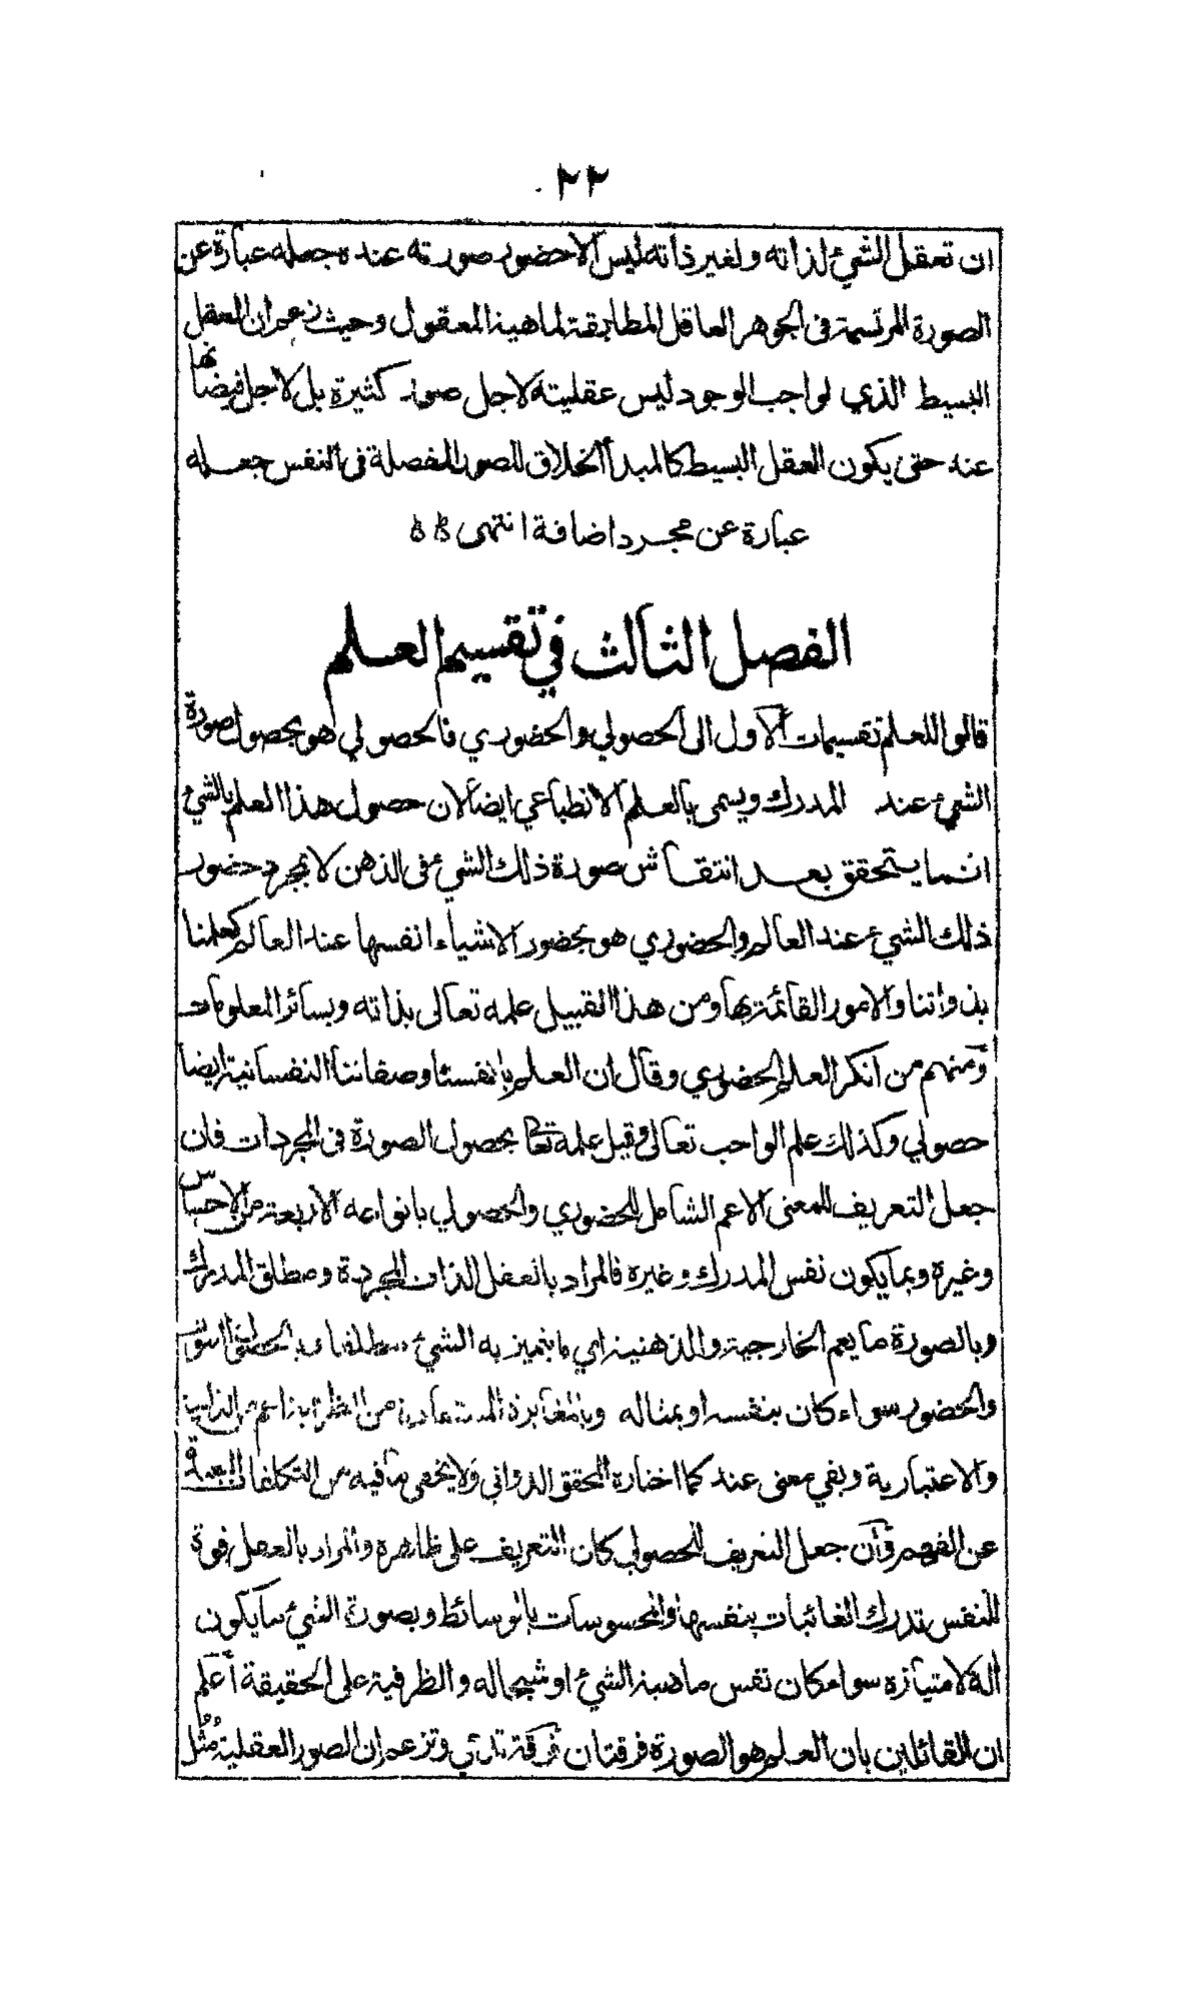 ٢٢
ان تعقل الشيء لذاته ولغير ذاته ليس الا حضور صورته عنده جعله عبارة عن
الصورة المرتسمة فى الجوهر العاقل المطابقة لماهية المعقول وحيث زعم ان العقل
البسيط الذي لواجب الوجود ليس عقليته لاجل صور كثيرة بل لاجل فيضانها
عنه حتى يكون العقل البسيط كالمبدأ الخلاق للصور المفصلة فى النفس جعله
عبارة عن مجرد اضافة انتهى
الفصل الثالث في تقسيم العلم
قالوا للعلم تقسيمات الاول الى الحصولي والحضوري فالحصولي هو بحصول صورة
الشيء عند المدرك ويسمى بالعلم الانطباعي ايضا لان حصول هذا العلم بالشيء
انما يتحقق بعد انتقاش صورة ذلك الشيء فى الذهن لا بمجرد حضور
ذلك الشيء عند العالم والحضوري هو بحضور الاشياء انفسها عند العالم كعلمنا
بذواتنا والامور القائمة بها ومن هذا القبيل علمه تعالى بذاته وبسائر المعلومات
ومنهم من انكر العلم الحضوري وقال ان العلم بانفسنا وصفاتنا النفسانية ايضا
حصولي وكذلك علم الواجب تعالى وقيل علمه تعالى بحصول الصورة فى المجردات فان
جعل التعريف للمعنى الاعم الشامل للحضوري والحصولي بانواعه الاربعة من الاحساس
وغيره وبما يكون نفس المدرك وغيره فالمراد بالعقل الذات المجردة ومطلق المدرك
وبالصورة ما يعم الخارجية والذهنية اي ما يتميز به الشيء مطلقا
والحضور سواء كان بنفسه او بمثاله وبالمغايرة المستفادة من الظرفية اعم من الذاتية
والاعتبارية وبفي معنى عند كما اختاره المحقق الدواني ولا يخفى ما فيه من التكلفات البعيدة
عن الفهم وان جعل التعريف للحصولي كان التعريف على ظاهره والمراد بالعقل قوة
للنفس تدرك الغائبات بنفسها والمحسوسات بالوسائط وبصورة الشيء ما يكون
الة لامتيازه سواء كان نفس ماهية الشيء او شبحا له والظرفية على الحقيقة اعلم
ان القائلين بان العلم هو الصورة فرقتان فرقة تدعي وتزعم ان الصور العقلية مُثُل